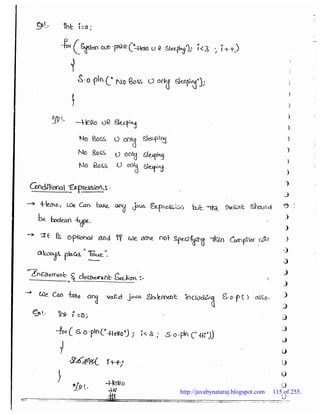 Ex!- int i=0;
for (System out.println("Hello U R Sleeping"); i<3 ; i++)
{
S.o.pln("No Boss U only sleeping");
}
O/P!- Hello UR Sleeping
No Boss U only Sleeping
No Boss U only Sleeping
No Boss U only Sleeping
Conditional Expression :
→ Here, we can take any java Expression but the result should
be boolean type.
→ It is optional and if we are not specifying then Compiler will
always place "True".
Increment & decrement Section :-
→ We can take any valid java Statement including S.o.p() also.
Ex!- int i=0;
for( S.o.pln("Hello"); i<3; S.o.pln("Hi"))
{
i++;
}
O/p!- Hello
Hi
http://javabynataraj.blogspot.com 115 of 255.